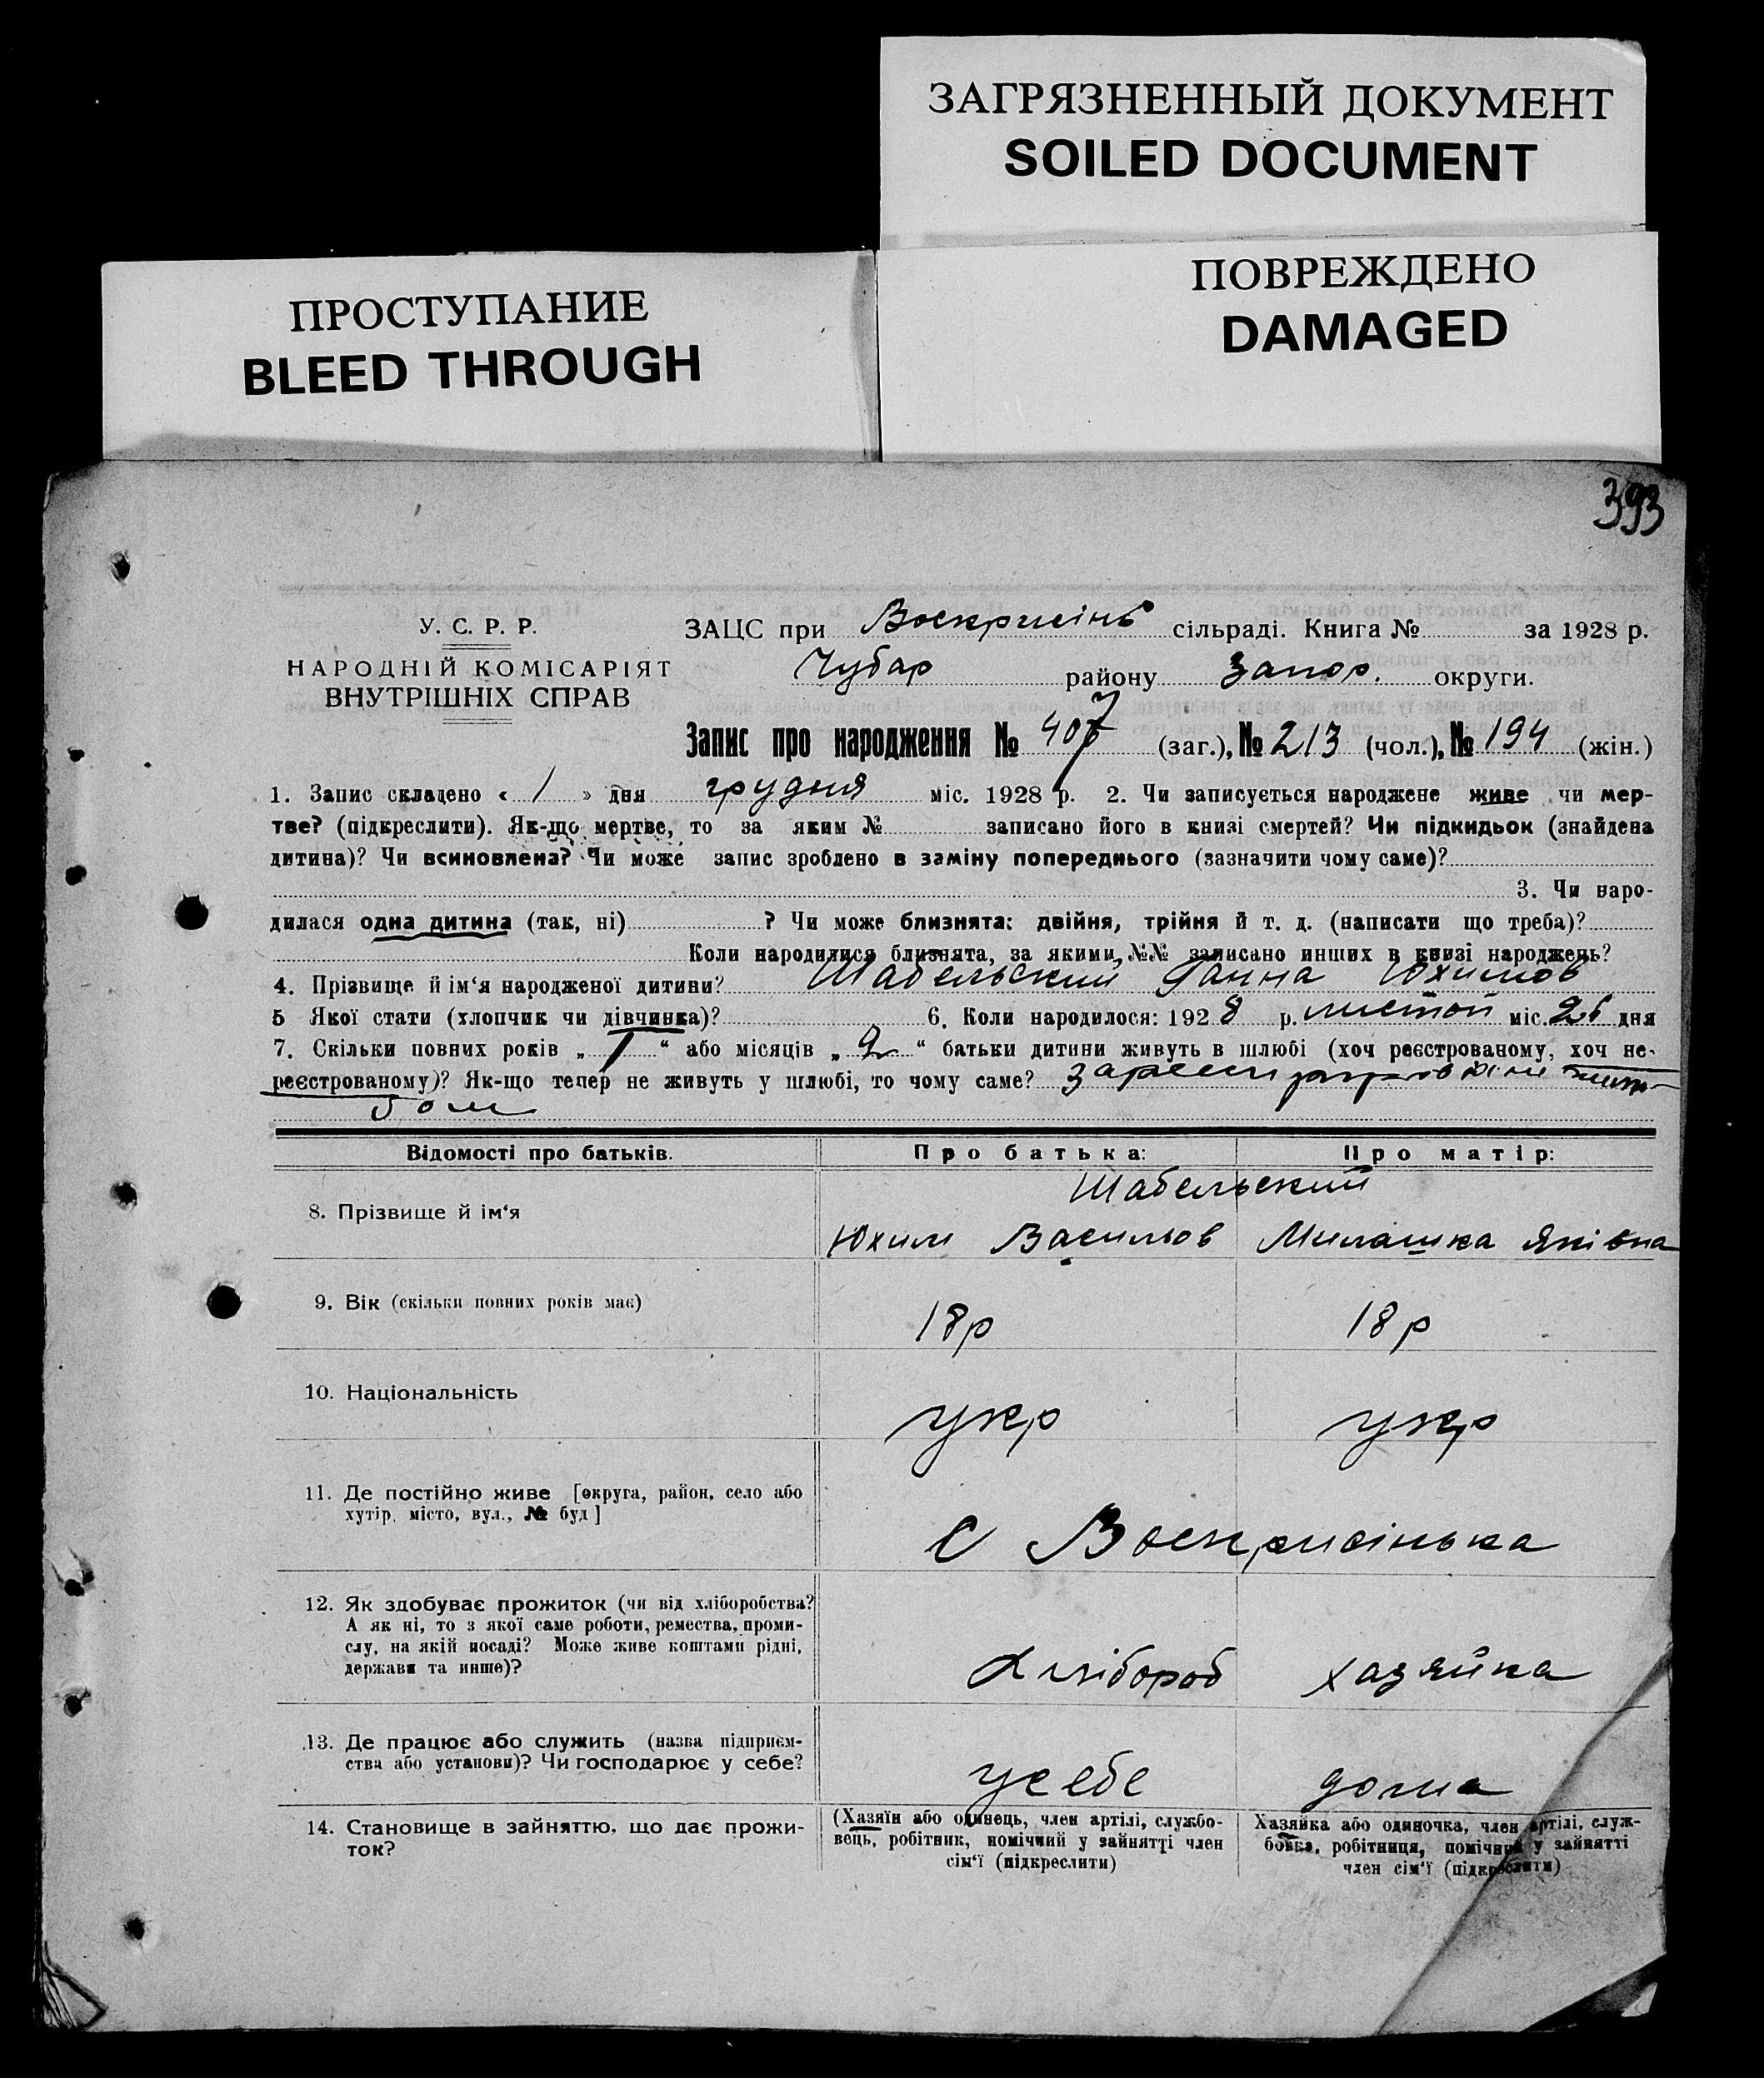 ЗАГРЯЗНЕННЫЙ ДОКУМЕНТ
SOILED DOCUMENT
ПОВРЕЖДЕНО
DAMAGED
ПРОСТУПАНИЕ
BLEED THROUGH
393
У. С. Р. Р.
НАРОДНІЙ КОМІСАРІЯТ
ВНУТРІШНІХ СПРАВ
ЗАЦС при Воскрисінь сільраді. Книга № за 1928 р.
Чубар району Запор. округи.
Запис про народження № 407 (заг.), № 213 (чол.), № 194 (жін.)
1. Запис складено « 1 » дня грудня міс. 1928 р. 2. Чи записується народжене живе чи мер-
тве? (підкреслити). Як-що мертве, то за яким № записано його в книзі смертей? Чи підкидьок (знайдена
дитина)? Чи всиновлена? Чи може запис зроблено в заміну попереднього (зазначити чому саме)?
3. Чи наро-
дилася одна дитина (так, ні) ? Чи може близнята: двійня, трійня й т. д. (написати що треба)?
Коли народилися близнята, за якими №№ записано инших в книзі народжень?
4. Прізвище й ім'я народженої дитини? Шабельский Ганна Юхимов
5 Якої стати (хлопчик чи дівчинка)? 6. Коли народилося: 1928 р. листоп міс. 26 дня
7. Скільки повних років „ 1 “ або місяців „ 2 “ батьки дитини живуть в шлюбі (хоч реєстрованому, хоч не-
реєстрованому)? Як-що тепер не живуть у шлюбі, то чому саме?
Відомості про батьків. Про батька: Про матір:
Шабельский
8. Прізвище й ім'я Юхим Васильов Милашка Яківна
9. Вік (скільки повних років має) 18р 18р
10. Національність укр укр
11. Де постійно живе [округа, район, село або
хутір, місто, вул., № буд]
с Воскрисінька
12. Як здобуває прожиток (чи від хліборобства?
А як ні, то з якої саме роботи, ремества, проми-
слу, на якій посаді? Може живе коштами рідні,
держави та инше)?
Хлібороб хазяйка
13. Де працює або служить (назва підприєм-
ства або установи)? Чи господарює у себе?
усебе дома
14. Становище в зайняттю, що дає прожи-
ток?
(Хазяїн або одинець, член артілі, службо-
вець, робітник, помічний у зайнятті член
сім'ї (підкреслити)
Хазяйка або одиночка, член артілі, служ-
бовка, робітниця, помічниця у зайнятті
член сім'ї (підкреслити)